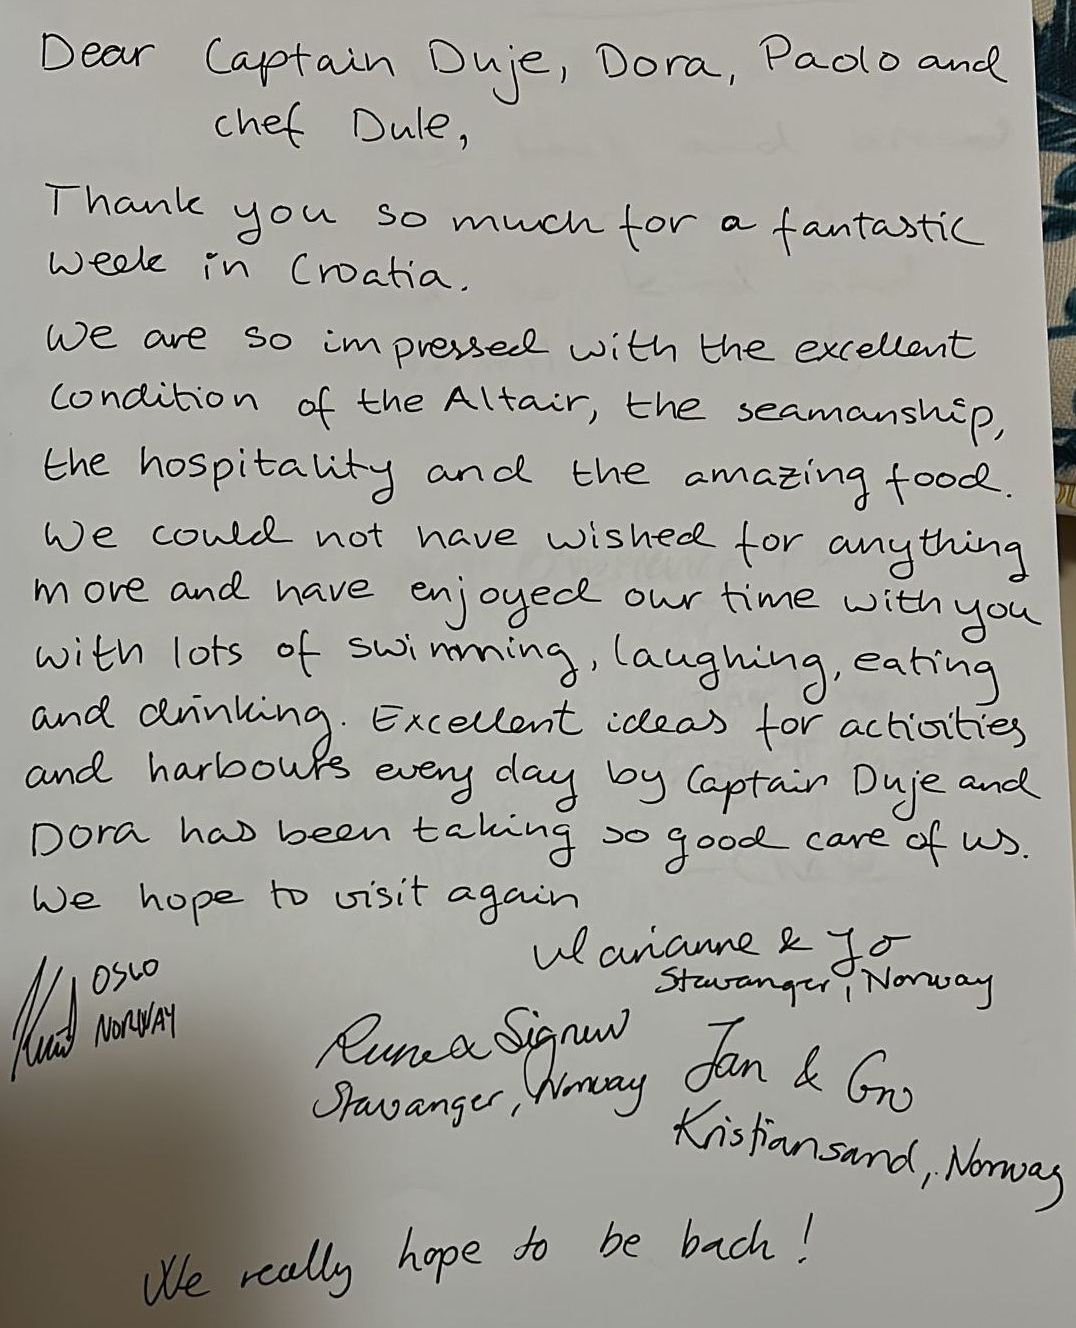 Dear Captain Duje, Dora, Paolo and
chef Dule,
Thank you so much for a fantastic
week in Croatia.
We are so impressed with the excellent
condition of the Altair, the seamanship,
the hospitality and the amazing food.
We could not have wished for anything
more and have enjoyed our time with you
with lots of swimming, laughing, eating
and drinking. Excellent ideas for activities
and harbours every day by Captain Duje and
Dora has been taking so good care of us.
We hope to visit again
Marianne & Jo
Stavanger, Norway
OSLO
NORWAY
Rune &
Stavanger, Norway
Jan & Gro
Kristiansand, Norway
We really hope to be back!